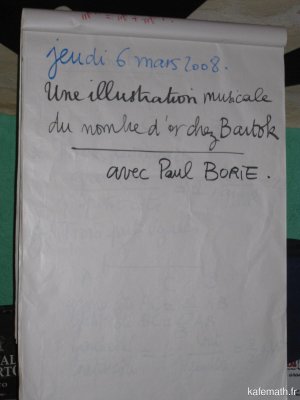 jeudi 6 mars 2008.
Une illustration musicale
du nombre d'or chez Bartok
avec Paul BORIE.
kafemath.fr